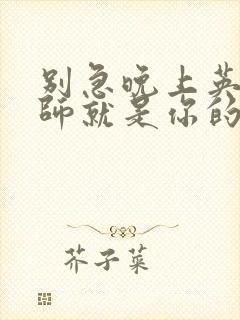 别急晚上英
师就是你的
芥子菜